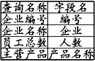 查询名称 字段名
企业编号 编号
企业名称 企业
员工总数 人数
主营产品 产品名称